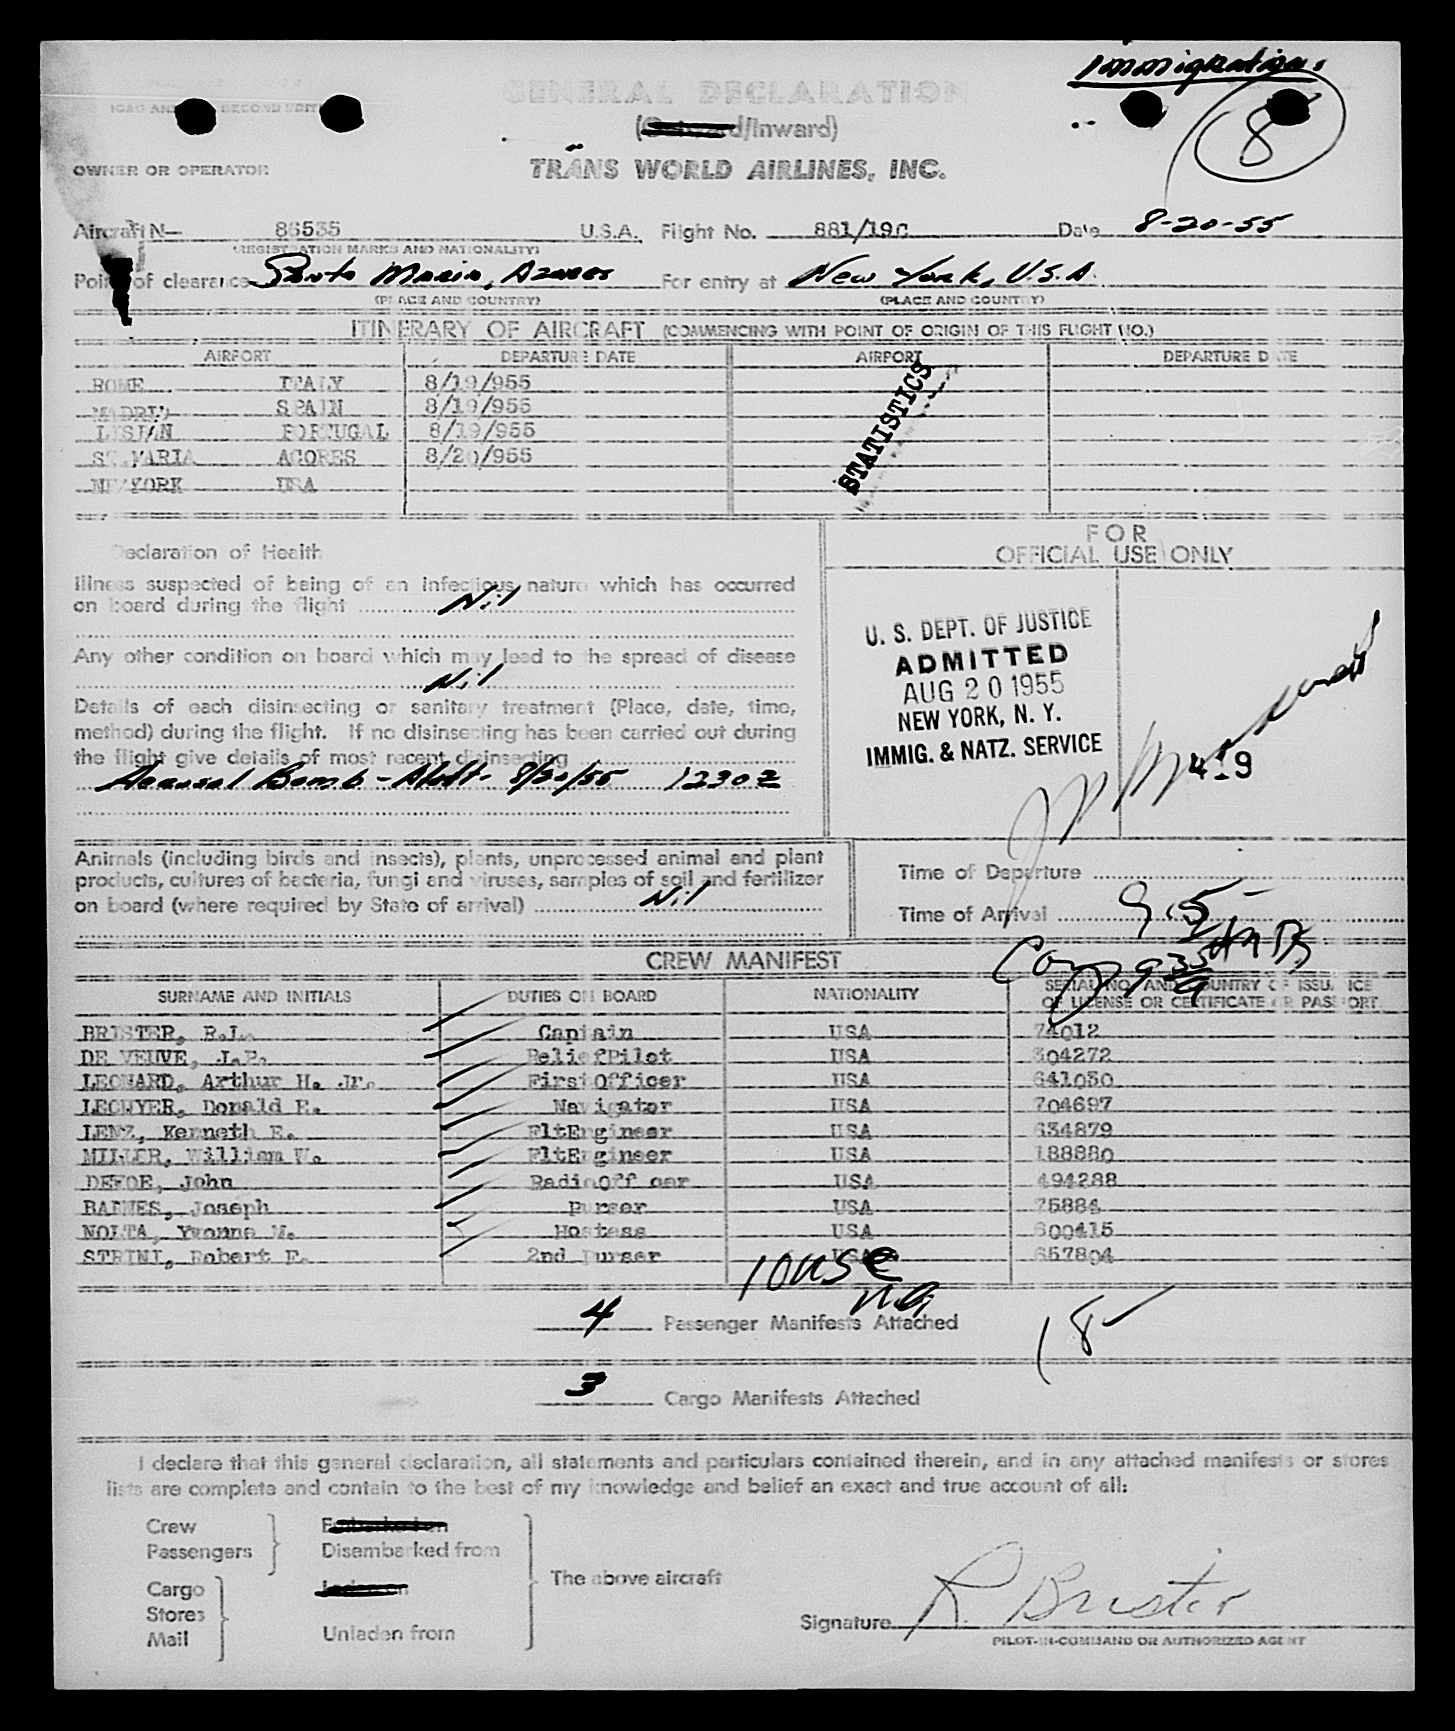 Immigration.
8
GENERAL DECLARATION
(Outward/Inward)
OWNER OR OPERATOR
TRANS WORLD AIRLINES, INC.
Aircraft N— 86535 U.S.A. Flight No. 881/19C Date 8-20-55
(REGISTRATION MARKS AND NATIONALITY)
Point of clearance Santa Maria, Azores For entry at New York, U.S.A.
(PLACE AND COUNTRY) (PLACE AND COUNTRY)
ITINERARY OF AIRCRAFT (COMMENCING WITH POINT OF ORIGIN OF THIS FLIGHT NO.)
AIRPORT DEPARTURE DATE AIRPORT DEPARTURE DATE
ROME ITALY 8/19/955
MADRID SPAIN 8/19/955
LISBAN PORTUGAL 8/19/955
ST.MARIA ACORES 8/20/955
NEWYORK USA
STATISTICS
Declaration of Health
FOR
OFFICIAL USE ONLY
Illness suspected of being of an infectious nature which has occurred
on board during the flight Nil
Any other condition on board which may lead to the spread of disease
Nil
Details of each disinsecting or sanitary treatment (Place, date, time,
method) during the flight. If no disinsecting has been carried out during
the flight give details of most recent disinsecting
Aerosol Bomb - Aloft - 8/20/55 1230Z
U. S. DEPT. OF JUSTICE
ADMITTED
AUG 20 1955
NEW YORK, N. Y.
IMMIG. & NATZ. SERVICE
419
Animals (including birds and insects), plants, unprocessed animal and plant
products, cultures of bacteria, fungi and viruses, samples of soil and fertilizer
on board (where required by State of arrival) Nil
Time of Departure
Time of Arrival 915
CREW MANIFEST
SURNAME AND INITIALS DUTIES ON BOARD NATIONALITY SERIAL NO. AND COUNTRY OF ISSUANCE
OF LICENSE OR CERTIFICATE OR PASSPORT
BRISTER, R.L. Captain USA 74012
DE VEUVE, J.P. ReliefPilot USA 304272
LEONARD, Arthur H. Jr. FirstOfficer USA 641030
LECWYER, Donald E. Navigator USA 704697
LENZ, Kenneth E. FltEngineer USA 634879
MILLER, William W. FltEngineer USA 188880
DEFOE, John RadioOfficer USA 494288
BARNES, Joseph Purser USA 75884
NOLTA, Yvonne M. Hostess USA 600415
STRINI, Robert F. 2nd Purser USA 657804
10 USC
4 Passenger Manifests Attached
18
3 Cargo Manifests Attached
I declare that this general declaration, all statements and particulars contained therein, and in any attached manifests or stores
lists are complete and contain to the best of my knowledge and belief an exact and true account of all:
Crew
Passengers
Embarked on
Disembarked from
Cargo
Stores
Mail
Laden on
Unladen from
The above aircraft
Signature R. Brister
PILOT-IN-COMMAND OR AUTHORIZED AGENT